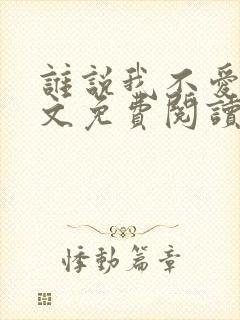 誰説我不愛
文免費閱讀
悸動篇章